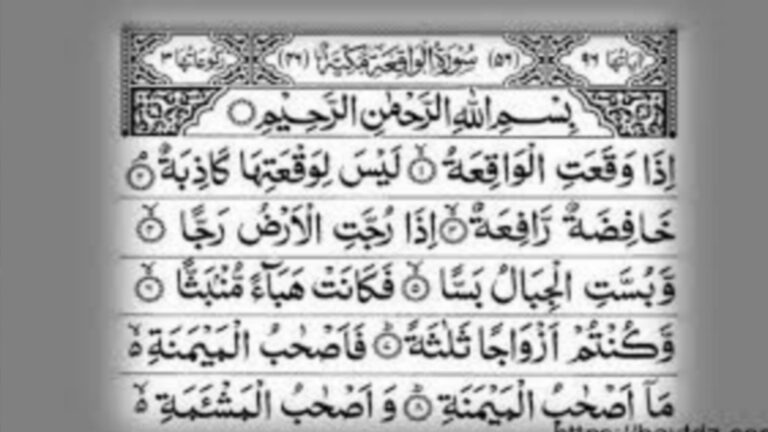 اٰيَاتُهَا ٩٦ (٥٦) سُوْرَةُ الْوَاقِعَةِ مَكِّيَّةٌ (٤٦) رُكُوْعَاتُهَا ٣
بِسْمِ اللّٰهِ الرَّحْمٰنِ الرَّحِيْمِ
اِذَا وَقَعَتِ الْوَاقِعَةُ ۙ‏ ١ لَيْسَ لِوَقْعَتِهَا كَاذِبَةٌ ۘ‏ ٢
خَافِضَةٌ رَّافِعَةٌ ۙ‏ ٣ اِذَا رُجَّتِ الْاَرْضُ رَجًّا ۙ‏ ٤
وَّبُسَّتِ الْجِبَالُ بَسًّا ۙ‏ ٥ فَكَانَتْ هَبَآءً مُّنْۢبَثًّا ۙ‏ ٦
وَّكُنْتُمْ اَزْوَاجًا ثَلٰثَةً ؕ‏ ٧ فَاَصْحٰبُ الْمَيْمَنَةِ ۙ
مَاۤ اَصْحٰبُ الْمَيْمَنَةِ ؕ‏ ٨ وَاَصْحٰبُ الْمَشْئَمَةِ ۙ